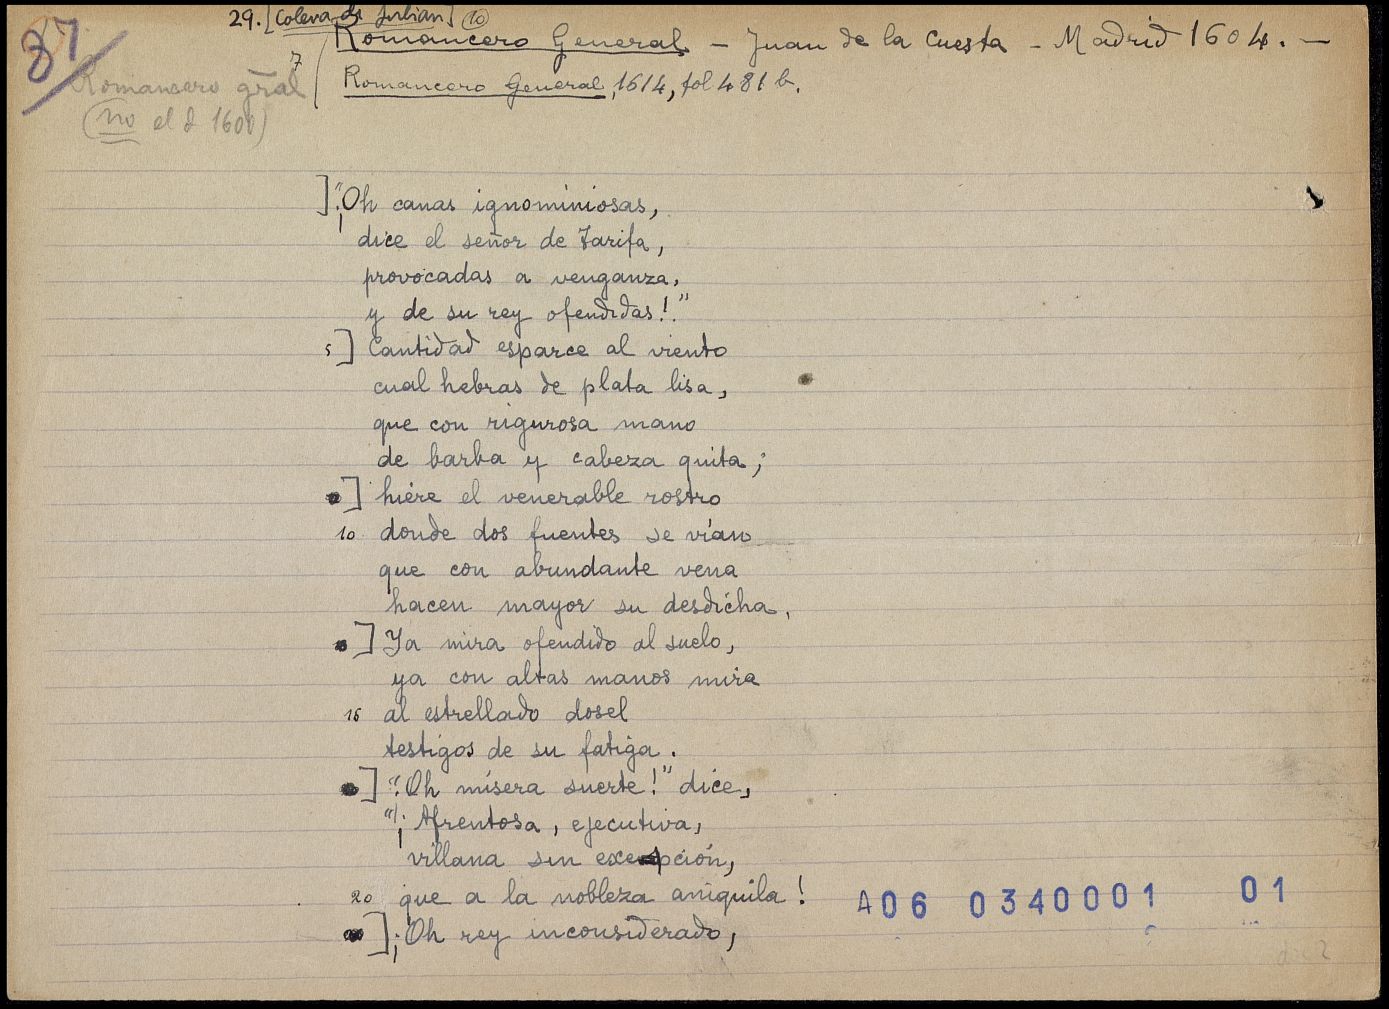 87
29. [Colera de Julian] 10
Romancero General - Juan de la Cuesta - Madrid 1604. -
7
Romancero General, 1614, fol 481 b.
Romancero gral
(no el d 1600)
] "¡Oh canas ignominiosas,
dice el señor de Tarifa,
provocadas a venganza,
y de su rey ofendidas!."
5 ] Cantidad esparce al viento
cual hebras de plata lisa,
que con rigurosa mano
de barba y cabeza quita;
] hiere el venerable rostro
10 donde dos fuentes se vían
que con abundante vena
hacen mayor su desdicha.
] Ya mira ofendido al suelo,
ya con altas manos mira
15 al estrellado dosel
testigos de su fatiga.
] "¡Oh mísera suerte!" dice,
"¡Afrentosa, ejecutiva,
villana sin exepción,
20 que a la nobleza aniquila!
] ¡Oh rey inconsiderado,
A06 0340001 01